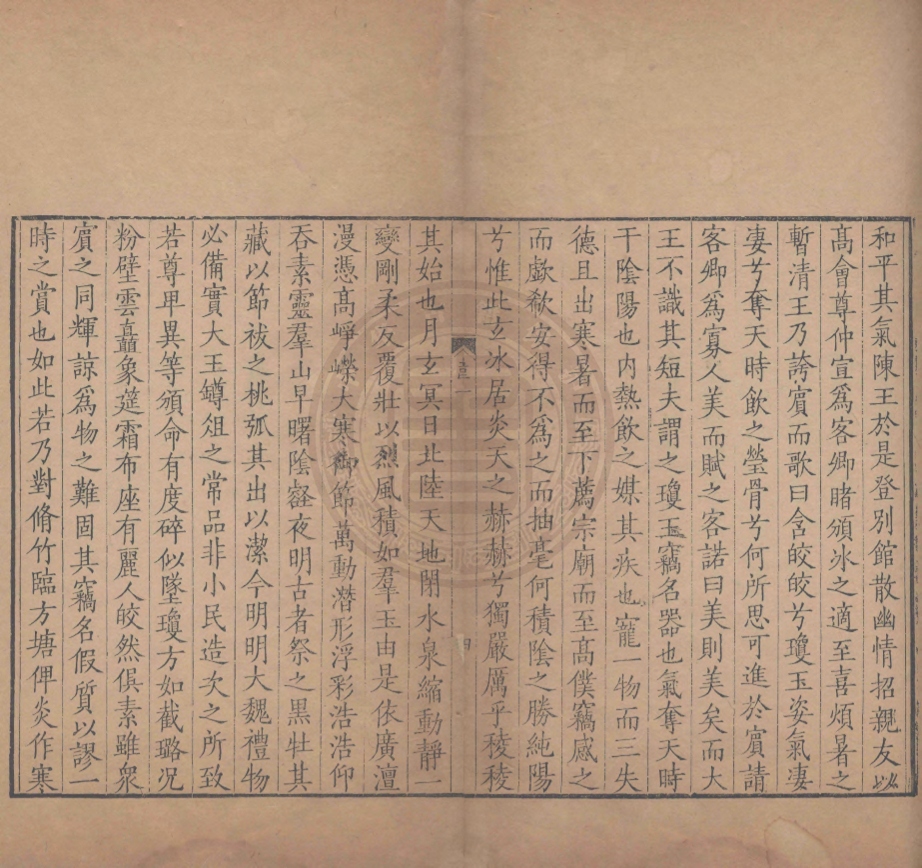 和平其氣陳王於是登别館散幽情招親友以
髙會尊仲宣爲客卿睹頒冰之適至喜煩暑之
暫清王乃誇賔而歌曰含皎皎兮瓊玉姿氣凄
凄兮奪天時飲之瑩骨兮何所思可進於賔請
客卿爲寡人美而賦之客諾曰美則美矣而大
王不識其短夫謂之瓊玉竊名器也氣奪天時
干陰陽也内熱飲之媒其疾也寵一物而三失
德且出寒暑而至下薦宗廟而至髙僕竊感之
而歔欷安得不爲之而抽毫何積陰之勝純陽
兮惟此玄冰居炎天之赫赫兮獨嚴厲乎稜稜
其始也月玄冥日北陸天地閉水泉縮動靜一
變剛柔反覆壯以烈風積如羣玉由是依廣澶
漫憑髙崢嶸大寒御節萬動潛形浮彩浩浩仰
吞素靈羣山早曙陰壑夜明古者祭之黒牡其
藏以節祓之桃弧其出以潔今明明大魏禮物
必備實大王罇俎之常品非小民造次之所致
若尊卑異等頒命有度碎似墜瓊方如截璐况
粉壁雲矗象筵霜布座有麗人皎然俱素雖衆
賔之同輝諒爲物之難固其竊名假質以謬一
時之賞也如此若乃對脩竹臨方塘俾炎作寒